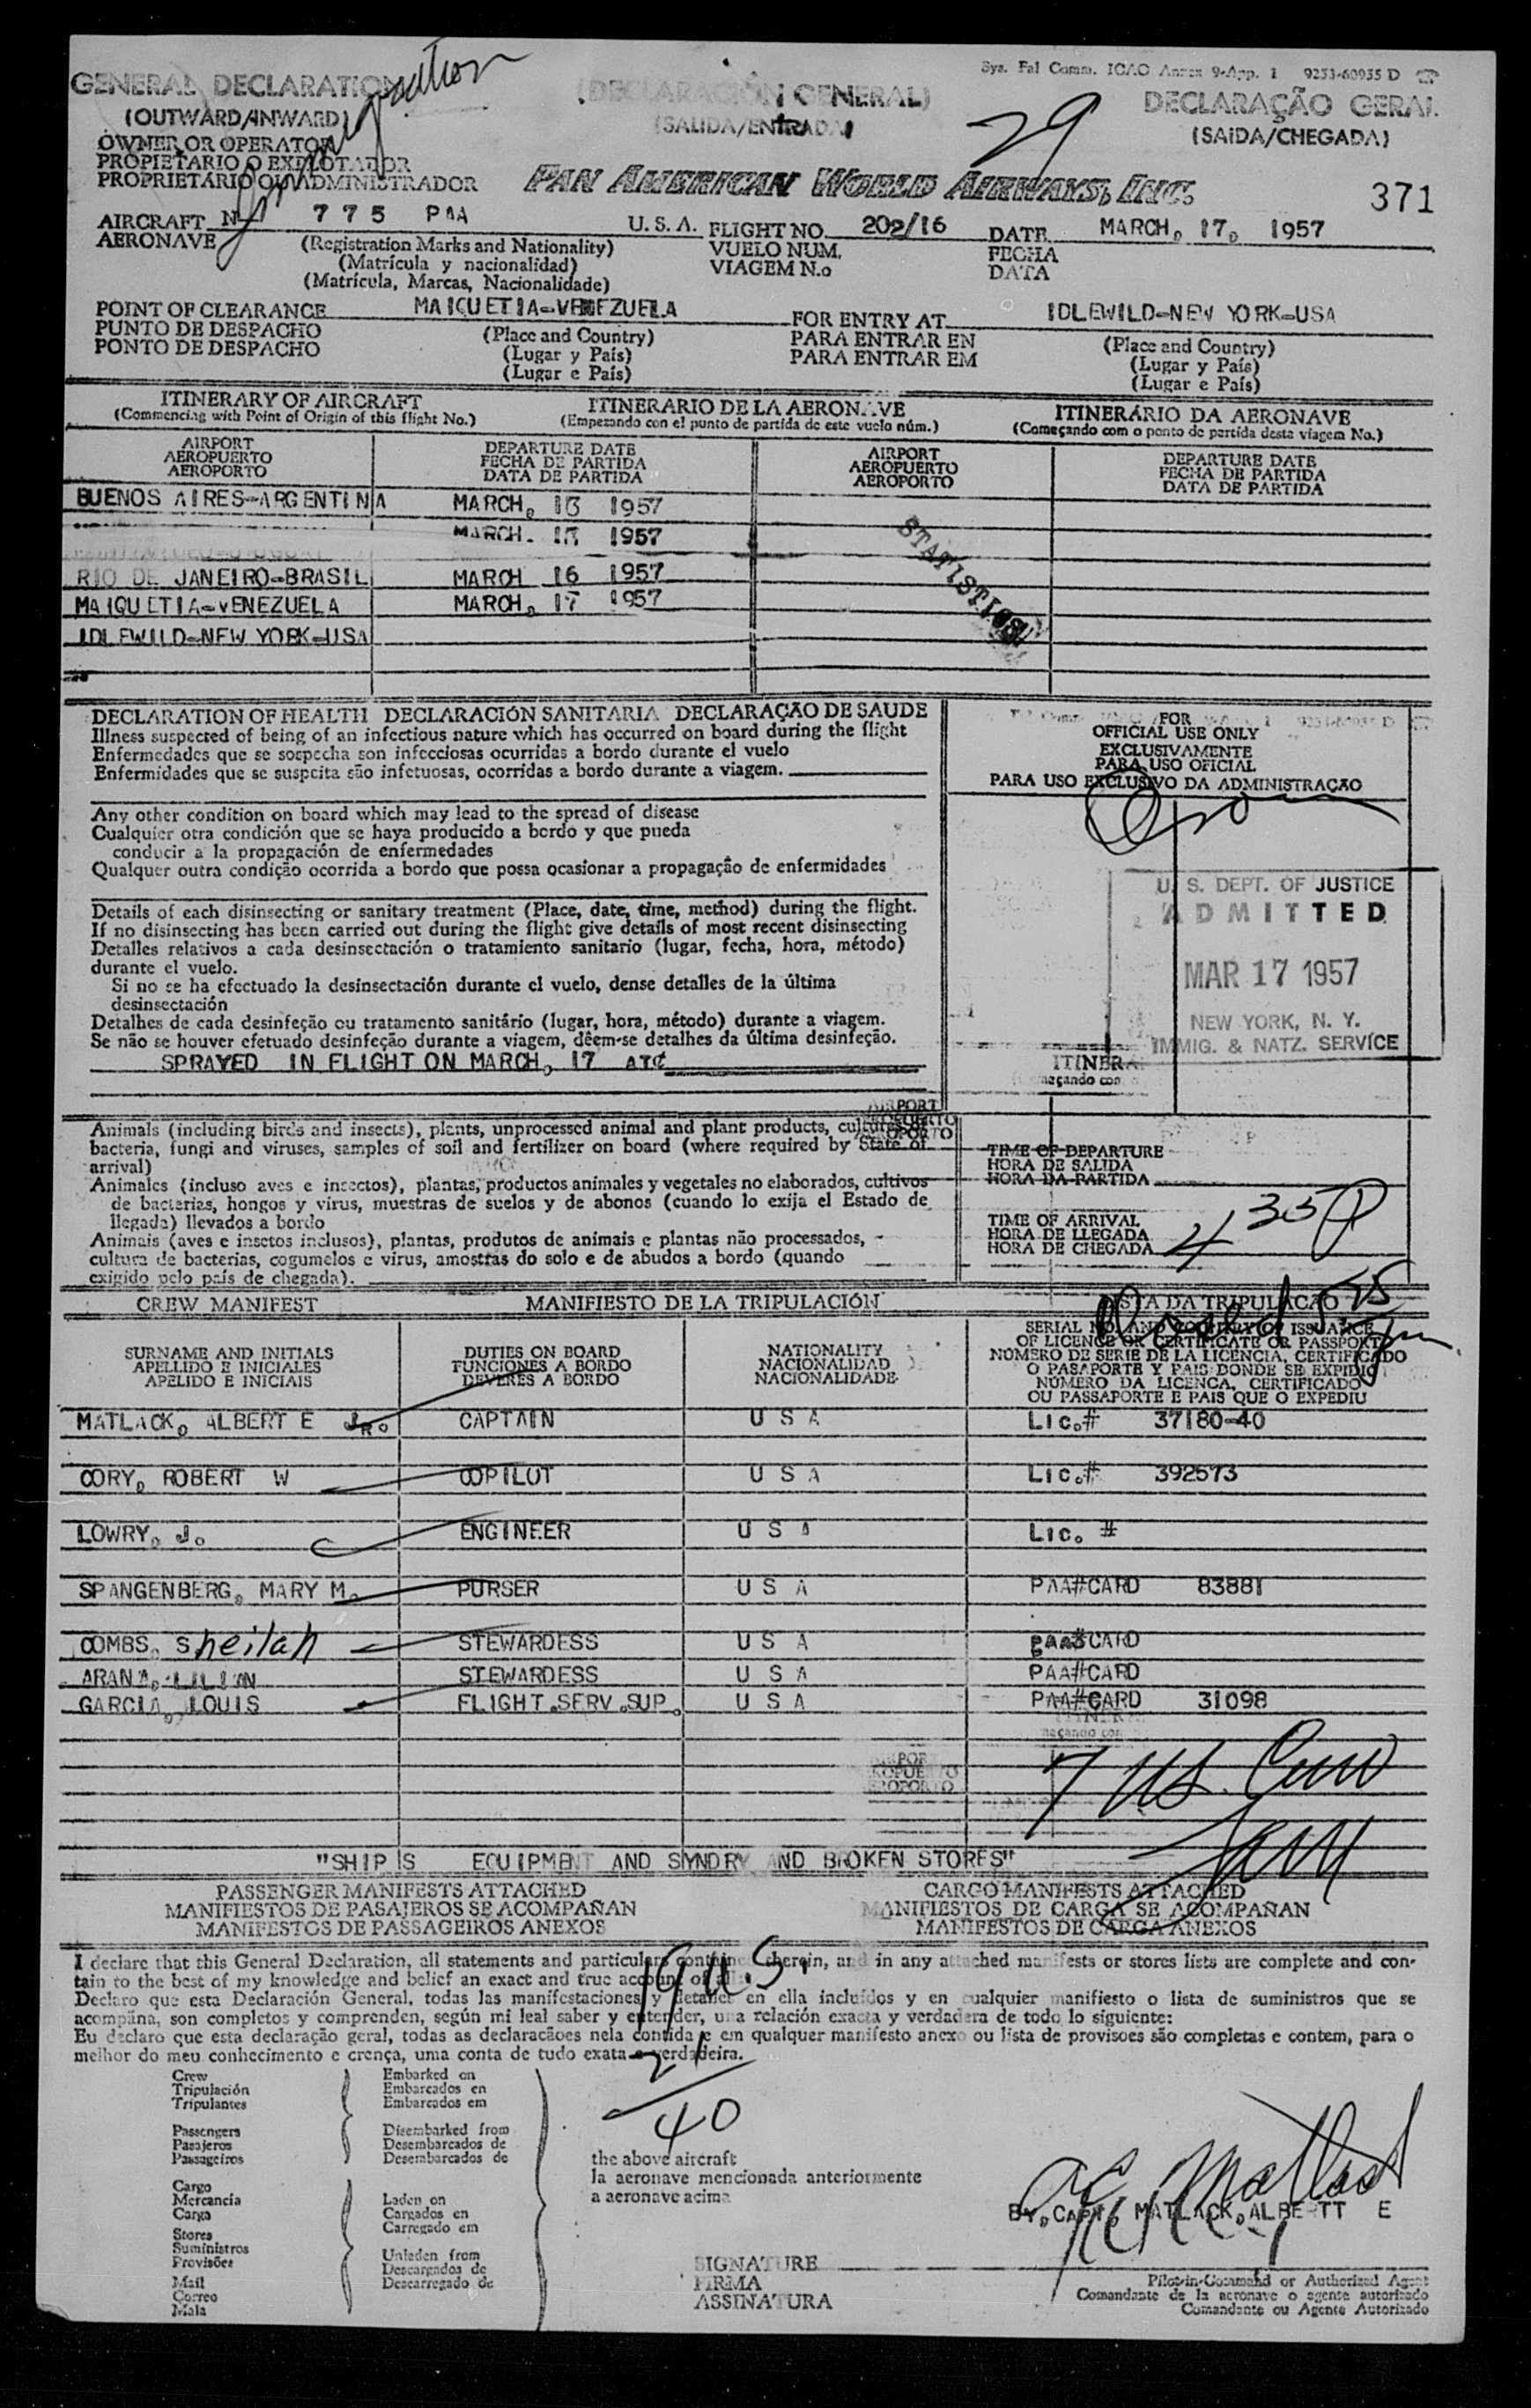 Sys. Fal Comm. ICAO Annex 9-App. 1 9253-60955 D
GENERAL DECLARATION
(DECLARACIÓN GENERAL)
DECLARAÇÃO GERAL
(OUTWARD/INWARD)
(SALIDA/ENTRADA)
29
(SAIDA/CHEGADA)
OWNER OR OPERATOR
PROPIETARIO O EXPLOTADOR
PROPRIETÁRIO OU ADMINISTRADOR
PAN AMERICAN WORLD AIRWAYS, INC.
371
AIRCRAFT N 775 PAA U.S.A. FLIGHT NO. 202/16 DATE MARCH, 17, 1957
AERONAVE (Registration Marks and Nationality) VUELO NUM. FECHA
(Matrícula y nacionalidad) VIAGEM N.o DATA
(Matrícula, Marcas, Nacionalidade)
POINT OF CLEARANCE MAIQUETIA-VENEZUELA FOR ENTRY AT IDLEWILD-NEW YORK-USA
PUNTO DE DESPACHO (Place and Country) PARA ENTRAR EN (Place and Country)
PONTO DE DESPACHO (Lugar y País) PARA ENTRAR EM (Lugar y País)
(Lugar e País) (Lugar e País)
ITINERARY OF AIRCRAFT ITINERARIO DE LA AERONAVE ITINERÁRIO DA AERONAVE
(Commencing with Point of Origin of this flight No.) (Empezando con el punto de partida de este vuelo núm.) (Começando com o ponto de partida desta viagem No.)
AIRPORT DEPARTURE DATE AIRPORT DEPARTURE DATE
AEROPUERTO FECHA DE PARTIDA AEROPUERTO FECHA DE PARTIDA
AEROPORTO DATA DE PARTIDA AEROPORTO DATA DE PARTIDA
BUENOS AIRES-ARGENTINA MARCH, 1957
MARCH. 1957
RIO DE JANEIRO-BRASIL MARCH 16 1957
MAIQUETIA-VENEZUELA MARCH, 17 1957
IDLEWILD-NEW YORK-USA
STATISTICS
DECLARATION OF HEALTH DECLARACIÓN SANITARIA DECLARAÇÃO DE SAUDE
Illness suspected of being of an infectious nature which has occurred on board during the flight
Enfermedades que se sospecha son infecciosas ocurridas a bordo durante el vuelo
Enfermidades que se suspeita são infetuosas, ocorridas a bordo durante a viagem.
FOR
OFFICIAL USE ONLY
EXCLUSIVAMENTE
PARA USO OFICIAL
PARA USO EXCLUSIVO DA ADMINISTRAÇÃO
Any other condition on board which may lead to the spread of disease
Cualquier otra condición que se haya producido a bordo y que pueda
conducir a la propagación de enfermedades
Qualquer outra condição ocorrida a bordo que possa ocasionar a propagação de enfermidades
U. S. DEPT. OF JUSTICE
ADMITTED
MAR 17 1957
NEW YORK, N. Y.
IMMIG. & NATZ. SERVICE
Details of each disinsecting or sanitary treatment (Place, date, time, method) during the flight.
If no disinsecting has been carried out during the flight give details of most recent disinsecting
Detalles relativos a cada desinsectación o tratamiento sanitario (lugar, fecha, hora, método)
durante el vuelo.
Si no se ha efectuado la desinsectación durante el vuelo, dense detalles de la última
desinsectación
Detalhes de cada desinfeção ou tratamento sanitário (lugar, hora, método) durante a viagem.
Se não se houver efetuado desinfeção durante a viagem, dêem-se detalhes da última desinfeção.
SPRAYED IN FLIGHT ON MARCH, 17
ITINERA
AIRPORT
Animals (including birds and insects), plants, unprocessed animal and plant products, cultures of
bacteria, fungi and viruses, samples of soil and fertilizer on board (where required by State of
arrival)
Animales (incluso aves e insectos), plantas, productos animales y vegetales no elaborados, cultivos
de bacterias, hongos y virus, muestras de suelos y de abonos (cuando lo exija el Estado de
llegada) llevados a bordo
Animais (aves e insetos inclusos), plantas, produtos de animais e plantas não processados,
cultura de bacterias, cogumelos e virus, amostras do solo e de abudos a bordo (quando
exigido pelo país de chegada).
TIME OF DEPARTURE
HORA DE SALIDA
HORA DA PARTIDA
TIME OF ARRIVAL
HORA DE LLEGADA
HORA DE CHEGADA 4 35 P
CREW MANIFEST MANIFIESTO DE LA TRIPULACIÓN LISTA DA TRIPULACAO
SURNAME AND INITIALS DUTIES ON BOARD NATIONALITY
APELLIDO E INICIALES FUNCIONES A BORDO NACIONALIDAD
APELIDO E INICIAIS DEVERES A BORDO NACIONALIDADE
SERIAL NO. AND COUNTRY OF ISSUANCE
OF LICENCE OR CERTIFICATE OR PASSPORT
NÚMERO DE SERIE DE LA LICENCIA, CERTIFICADO
O PASAPORTE Y PAIS DONDE SE EXPIDIO
NÚMERO DA LICENCA, CERTIFICADO
OU PASSAPORTE E PAIS QUE O EXPEDIU
MATLACK, ALBERT E JR. CAPTAIN U S A LIC.# 37180-40
CORY, ROBERT W COPILOT U S A LIC.# 392573
LOWRY, J. ENGINEER U S A LIC. #
SPANGENBERG, MARY M. PURSER U S A PAA#CARD 83881
COMBS, Sheilah STEWARDESS U S A PAA#CARD
ARANA, LILIAN STEWARDESS U S A PAA#CARD
GARCIA, LOUIS FLIGHT.SERV.SUP. U S A PAA#CARD 31098
7 US.
"SHIP IS EQUIPMENT AND SYNDRY AND BROKEN STORES"
PASSENGER MANIFESTS ATTACHED CARGO MANIFESTS ATTACHED
MANIFIESTOS DE PASAJEROS SE ACOMPAÑAN MANIFIESTOS DE CARGA SE ACOMPAÑAN
MANIFESTOS DE PASSAGEIROS ANEXOS MANIFESTOS DE CARGA ANEXOS
I declare that this General Declaration, all statements and particulars contained therein, and in any attached manifests or stores lists are complete and con-
tain to the best of my knowledge and belief an exact and true account of all
Declaro que esta Declaración General, todas las manifestaciones y detalles en ella incluídos y en cualquier manifiesto o lista de suministros que se
acompaña, son completos y comprenden, según mi leal saber y entender, una relación exacta y verdadera de todo lo siguiente:
Eu declaro que esta declaração geral, todas as declaracãoes nela contida e em qualquer manifesto anexo ou lista de provisoes são completas e contem, para o
melhor do meu conhecimento e crença, uma conta de tudo exata e verdadeira.
19 U.S.
21
40
Crew Embarked on
Tripulación Embarcados en
Tripulantes Embarcados em
Passengers Disembarked from
Pasajeros Desembarcados de
Passageiros Desembarcados de
the above aircraft
la aeronave mencionada anteriormente
a aeronave acima
Cargo
Mercancía Laden on
Carga Cargados en
Carregado em
Stores
Suministros Unladen from
Provisões Descargados de
Mail Descarregado de
Correo
Mala
BY, CAPT, MATLACK, ALBERTT E
SIGNATURE
FIRMA
ASSINATURA
Pilot-in-Command or Authorized Agent
Comandante de la aeronave o agente autorizado
Comandante ou Agente Autorizado